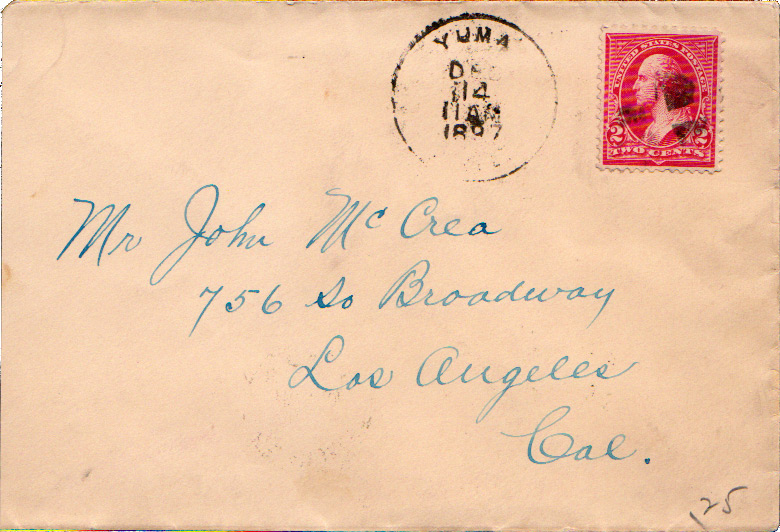 YUMA
DEC
14
11 AM
1897
UNITED STATES POSTAGE
2 2
TWO CENTS
Mr John McCrea
756 So Broadway
Los Angeles
Cal.
.25